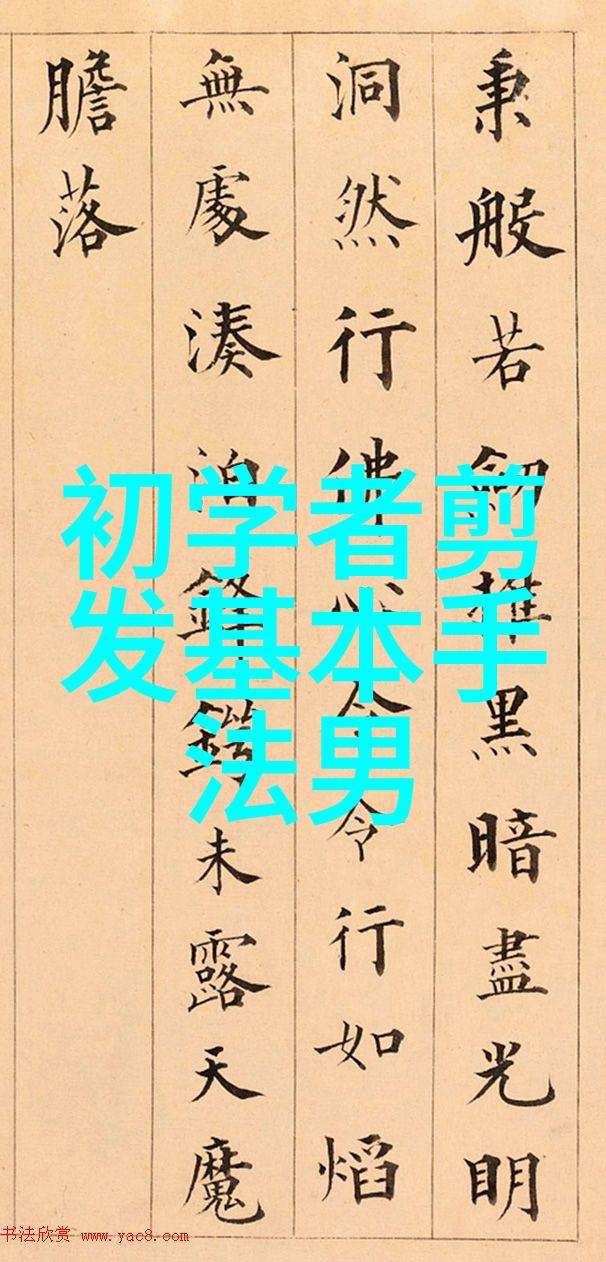 秉般若摧黑暗盡光明
洞然行佛心令令行如熖
無處湊泊鋒鍔未露天魔
膽落
初学者剪
发基本手
法男
书法欣赏 www.yac8.com